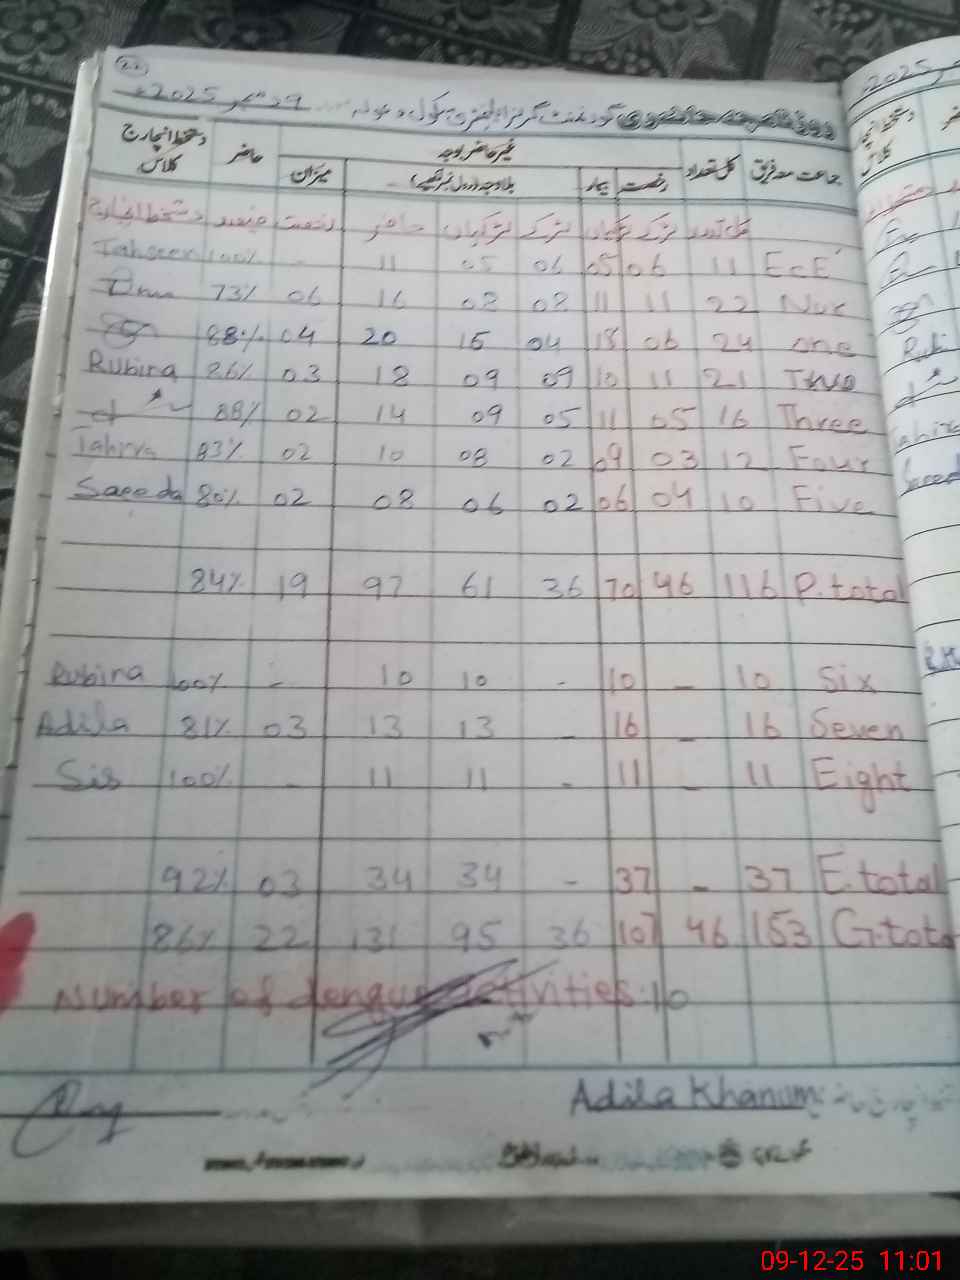 22
9 دسمبر 2025ء گورنمنٹ گرلز ایلیمنٹری سکول
جماعت معہ فریق کل تعداد غیر حاضر بوجہ حاضر دستخط انچارج کلاس
رخصت بیمار بلاوجہ میزان
کل تعداد لڑکے لڑکیاں لڑکے لڑکیاں حاضر رخصت فیصد دستخط انچارج
Tahseen 100% - 11 05 06 05 06 11 ECE
73% 06 16 08 08 11 11 22 Nur
88% 04 20 15 04 18 06 24 one
Rubina 86% 03 18 09 09 10 11 21 Two
88% 02 14 09 05 11 05 16 Three
Tahira 83% 02 10 08 02 09 03 12 Four
Saeeda 80% 02 08 06 02 06 04 10 Five
84% 19 97 61 36 70 46 116 P.total
Rubina 100% - 10 10 - 10 - 10 Six
Adila 81% 03 13 13 - 16 - 16 Seven
Sis 100% - 11 11 - 11 - 11 Eight
92% 03 34 34 - 37 - 37 E.total
86% 22 131 95 36 107 46 153 G.tot
Number of dengue activities:10
Adila Khanum
09-12-25 11:01